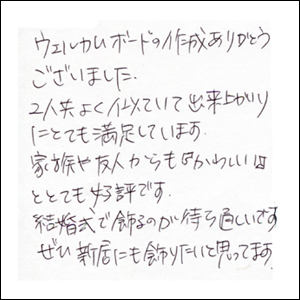 ウェルカムボードの作成ありがとう
ございました.
2人共よく似ていて出来上がり
にとても満足しています.
家族や友人からも"かわいい"
ととても好評です.
結婚式で飾るのが待ち遠しいです
ぜひ新居にも飾りたいと思ってます.